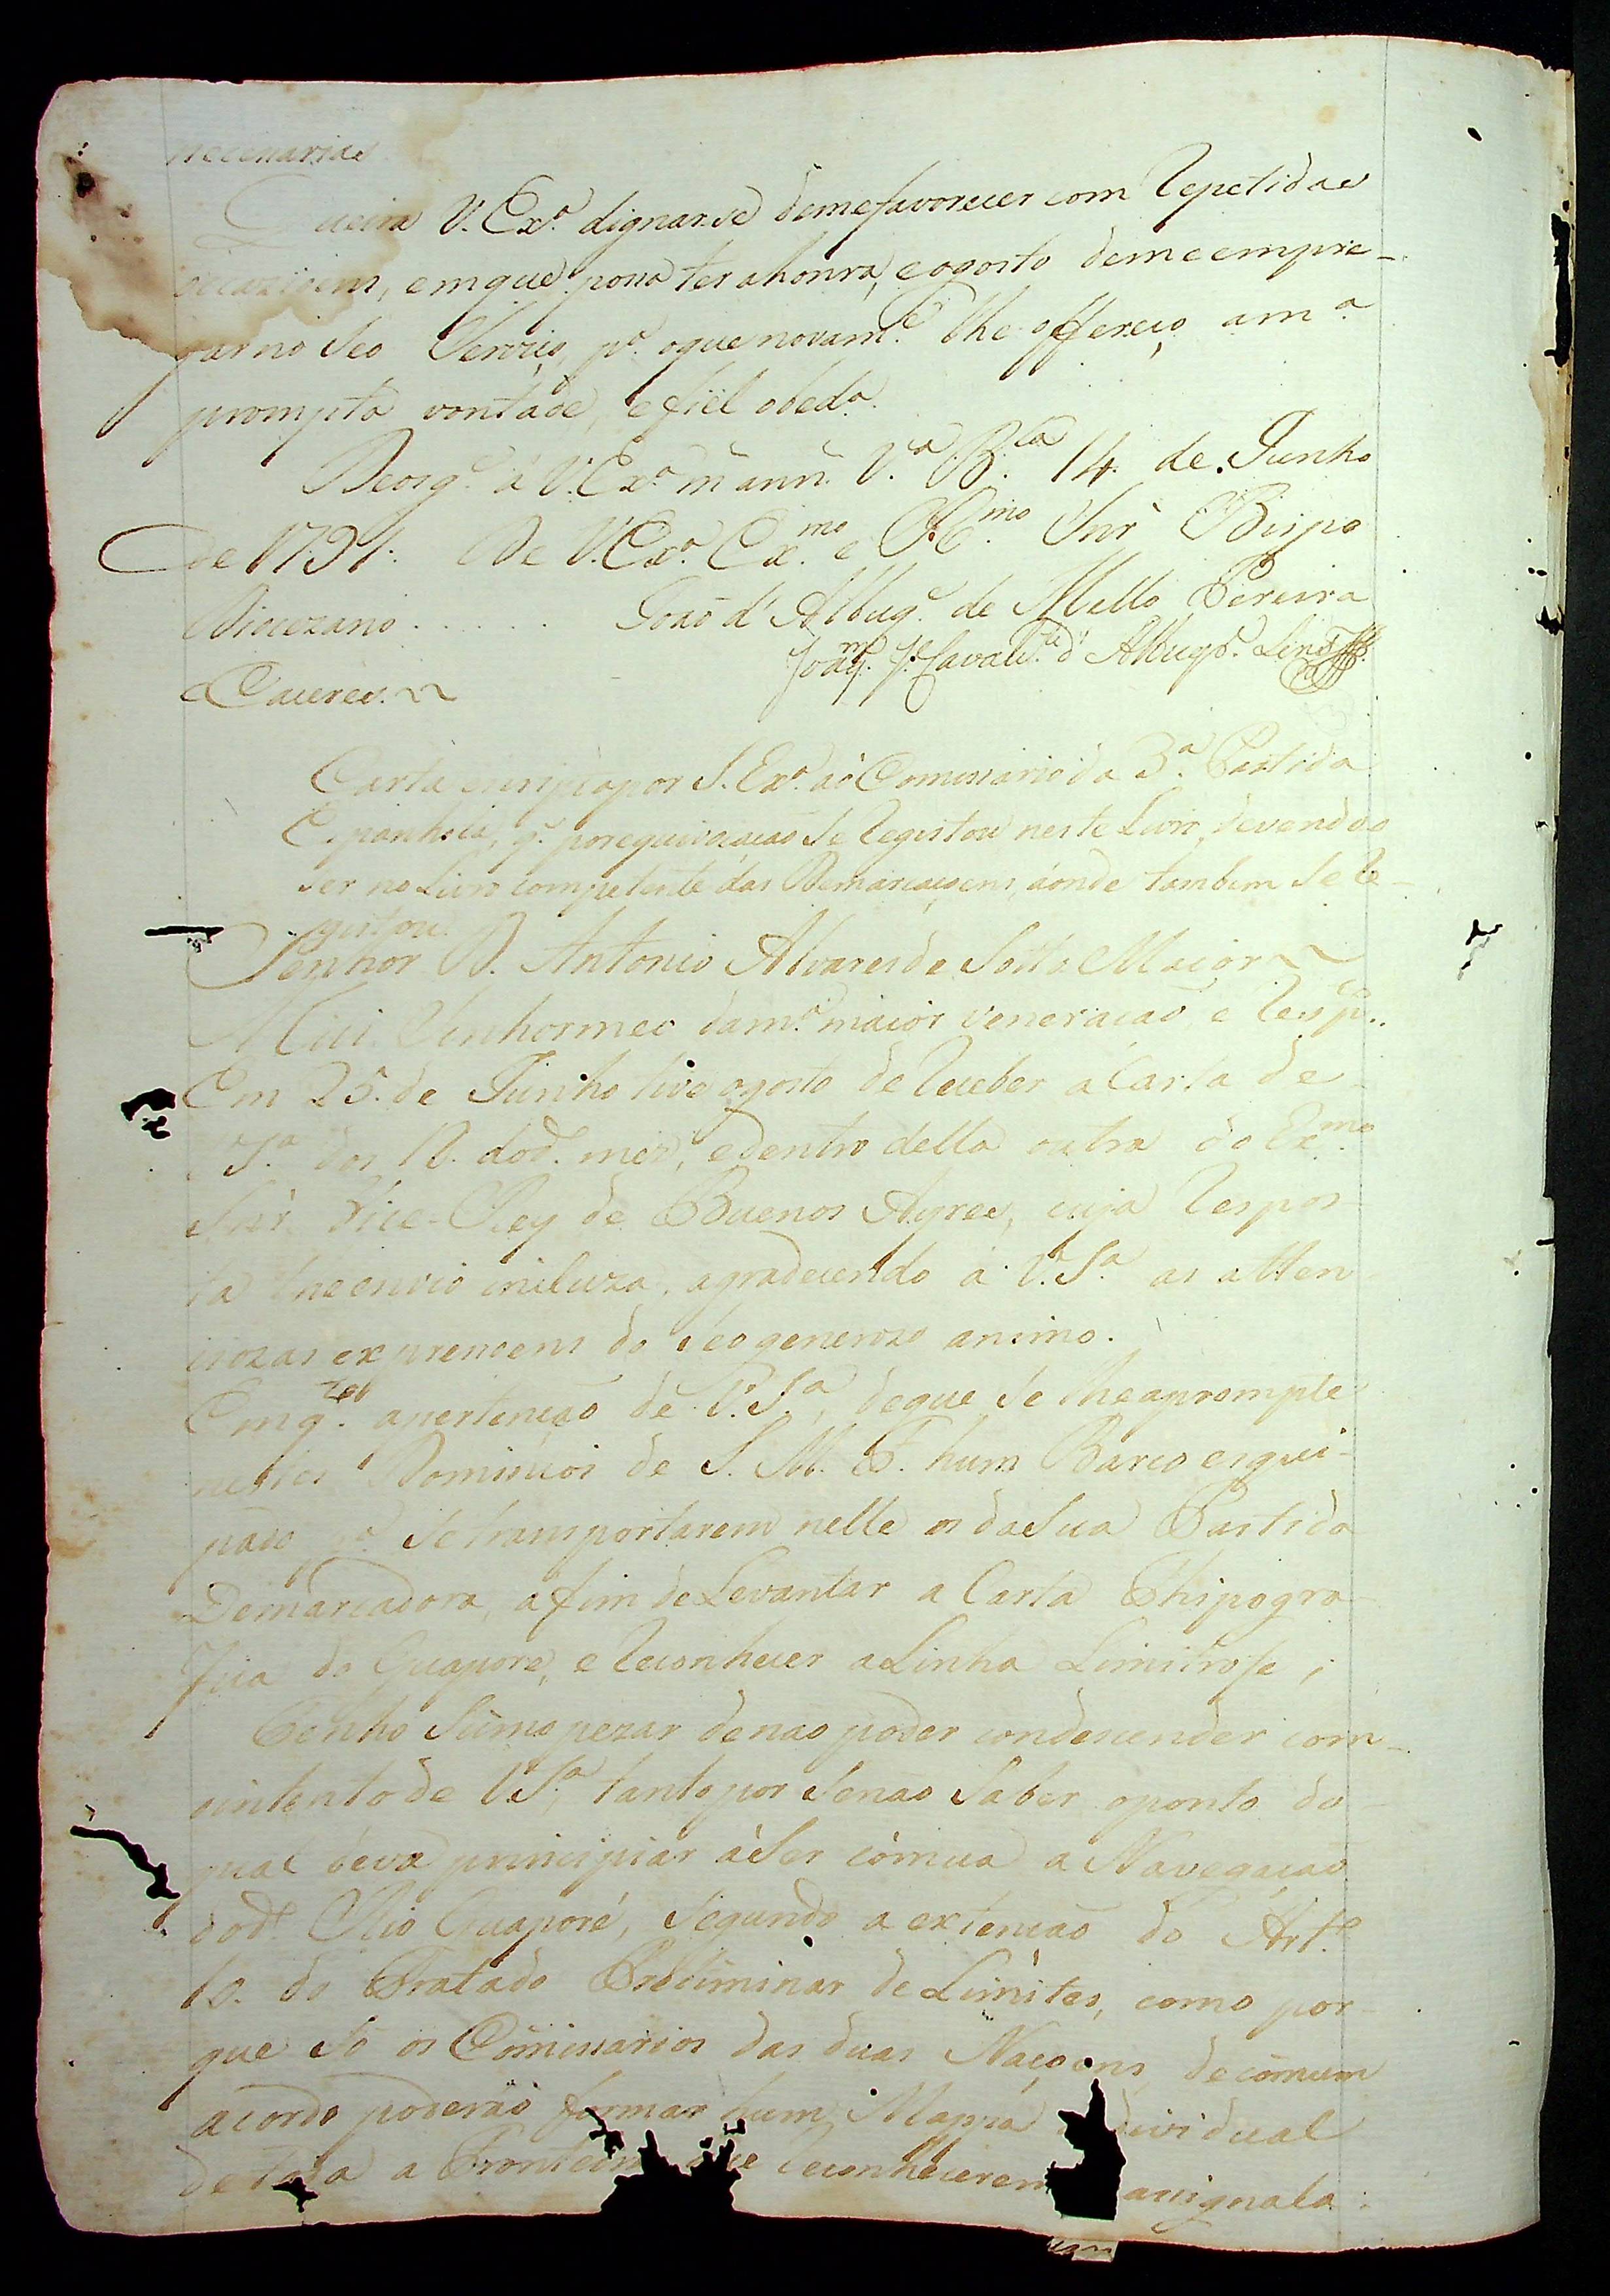 necessarias
Queira V. Exª. dignarse demefavorecer com repetidas
occazioens, emque possa ter ahonra, eogosto demeempre-
gar no seo serviço, pª. oque novamᵗᵉ. lhe offereço am.ª
prompta vontade, efiel obedª.
Deosgᵉ. a V. Exª. m. ann. Vª. Bᶜᵃ. 14. de Junho
de 1791. De V. Exª. Exᵐᵒ. e Rᵐᵒ. Snr' Bispo
Diocezano . . . . . . Joaõ d' Albuqᵉ. de Mello Pereira
Joaqᵐ. Jᵉ. Cavalcᵗᵉ. d' Albuqᵉ. Lins
e Caceres.
Carta escripta por S. Exª. aó Comissario da 3ª. Partida
Espanhola, q̃. porequivocacaõ se registou neste Livro, devendo
ser no Livro competente das Demarcaçoens, aonde tambem se re-
gistou.
Senhor D. Antonio Alvares de Sotto Maior
Mui Senhormeo dam.ª maior veneracaõ e respᵗᵒ.
Em 25. de Junho tive ogosto de receber a Carta de
V. Sª. dos 18. dod.º mez, edentro della outra do Exᵐᵒ.
Snr. Vice-Rey de Buenos Ayres, cuja respos-
ta lhe envio incluza, agradecendo a V. Sª. as atten-
ciozas expressoens do seo generozo animo.
Emqᵗᵒ. apertencaõ de V. Sª., deque se lheaprompte
nestes Dominios de S. M. F. hum Barco esqui-
pado pª. setransportarem nelle os dasua Partida
Demarcadora, afim deLevantar a Carta Thipogra-
fica do Guapore, e reconhecer aLinha Limitrofe;
Tenho sumo pezar denaõ poder condescender com
ointento de V. Sª. tanto por senaõ saber oponto do
qual deva principiar áser cómua a Navegacaõ
dodº. Rio Guaporé, segundo a extencaõ do Artº.
10. do Tratado Preliminar de Limites, como por-
que só os Comissarios das duas Naçoens, decómum
acordo poderaõ formar hum Mappa individual
detoda a Fronteira que reconhecerem assignala: